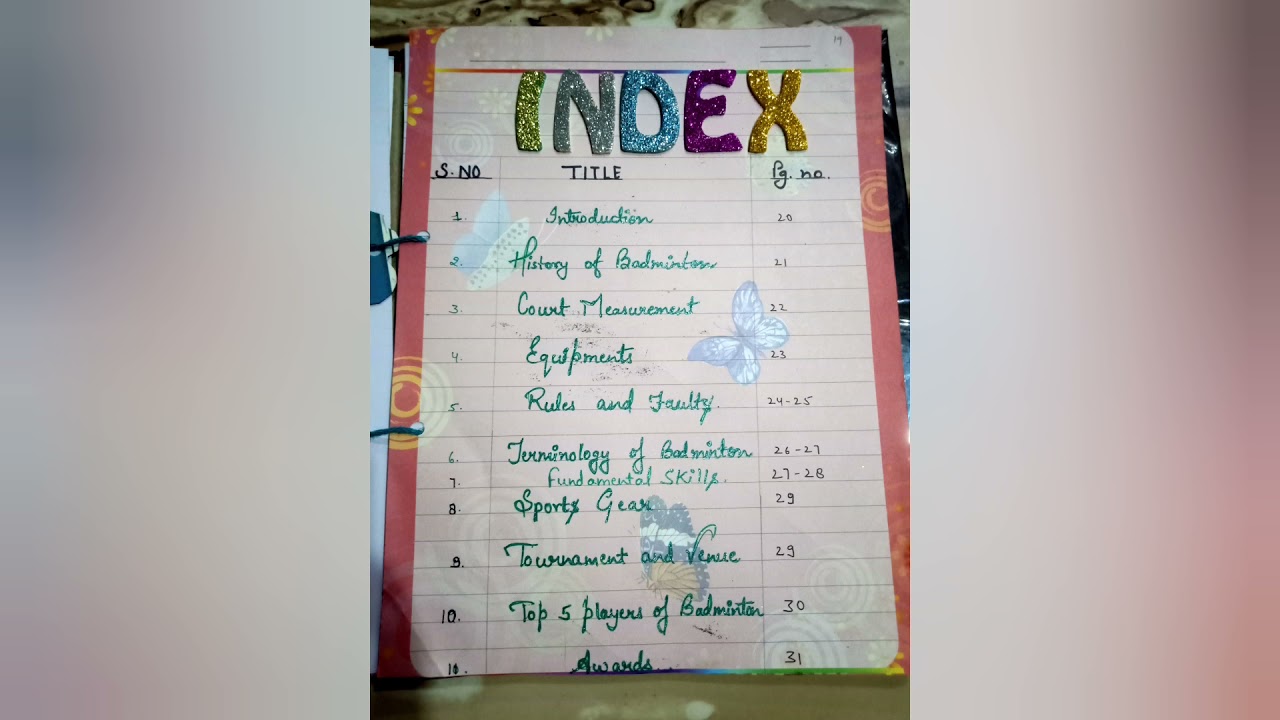 19
INDEX
S.NO TITLE Pg. no.
1. Introduction 20
2. History of Badminton 21
3. Court Measurement 22
4. Equipments 23
5. Rules and Faults. 24-25
6. Terminology of Badminton 26-27
7. Fundamental Skills. 27-28
8. Sports Gear 29
9. Tournament and Venue 29
10. Top 5 players of Badminton 30
11. Awards 31